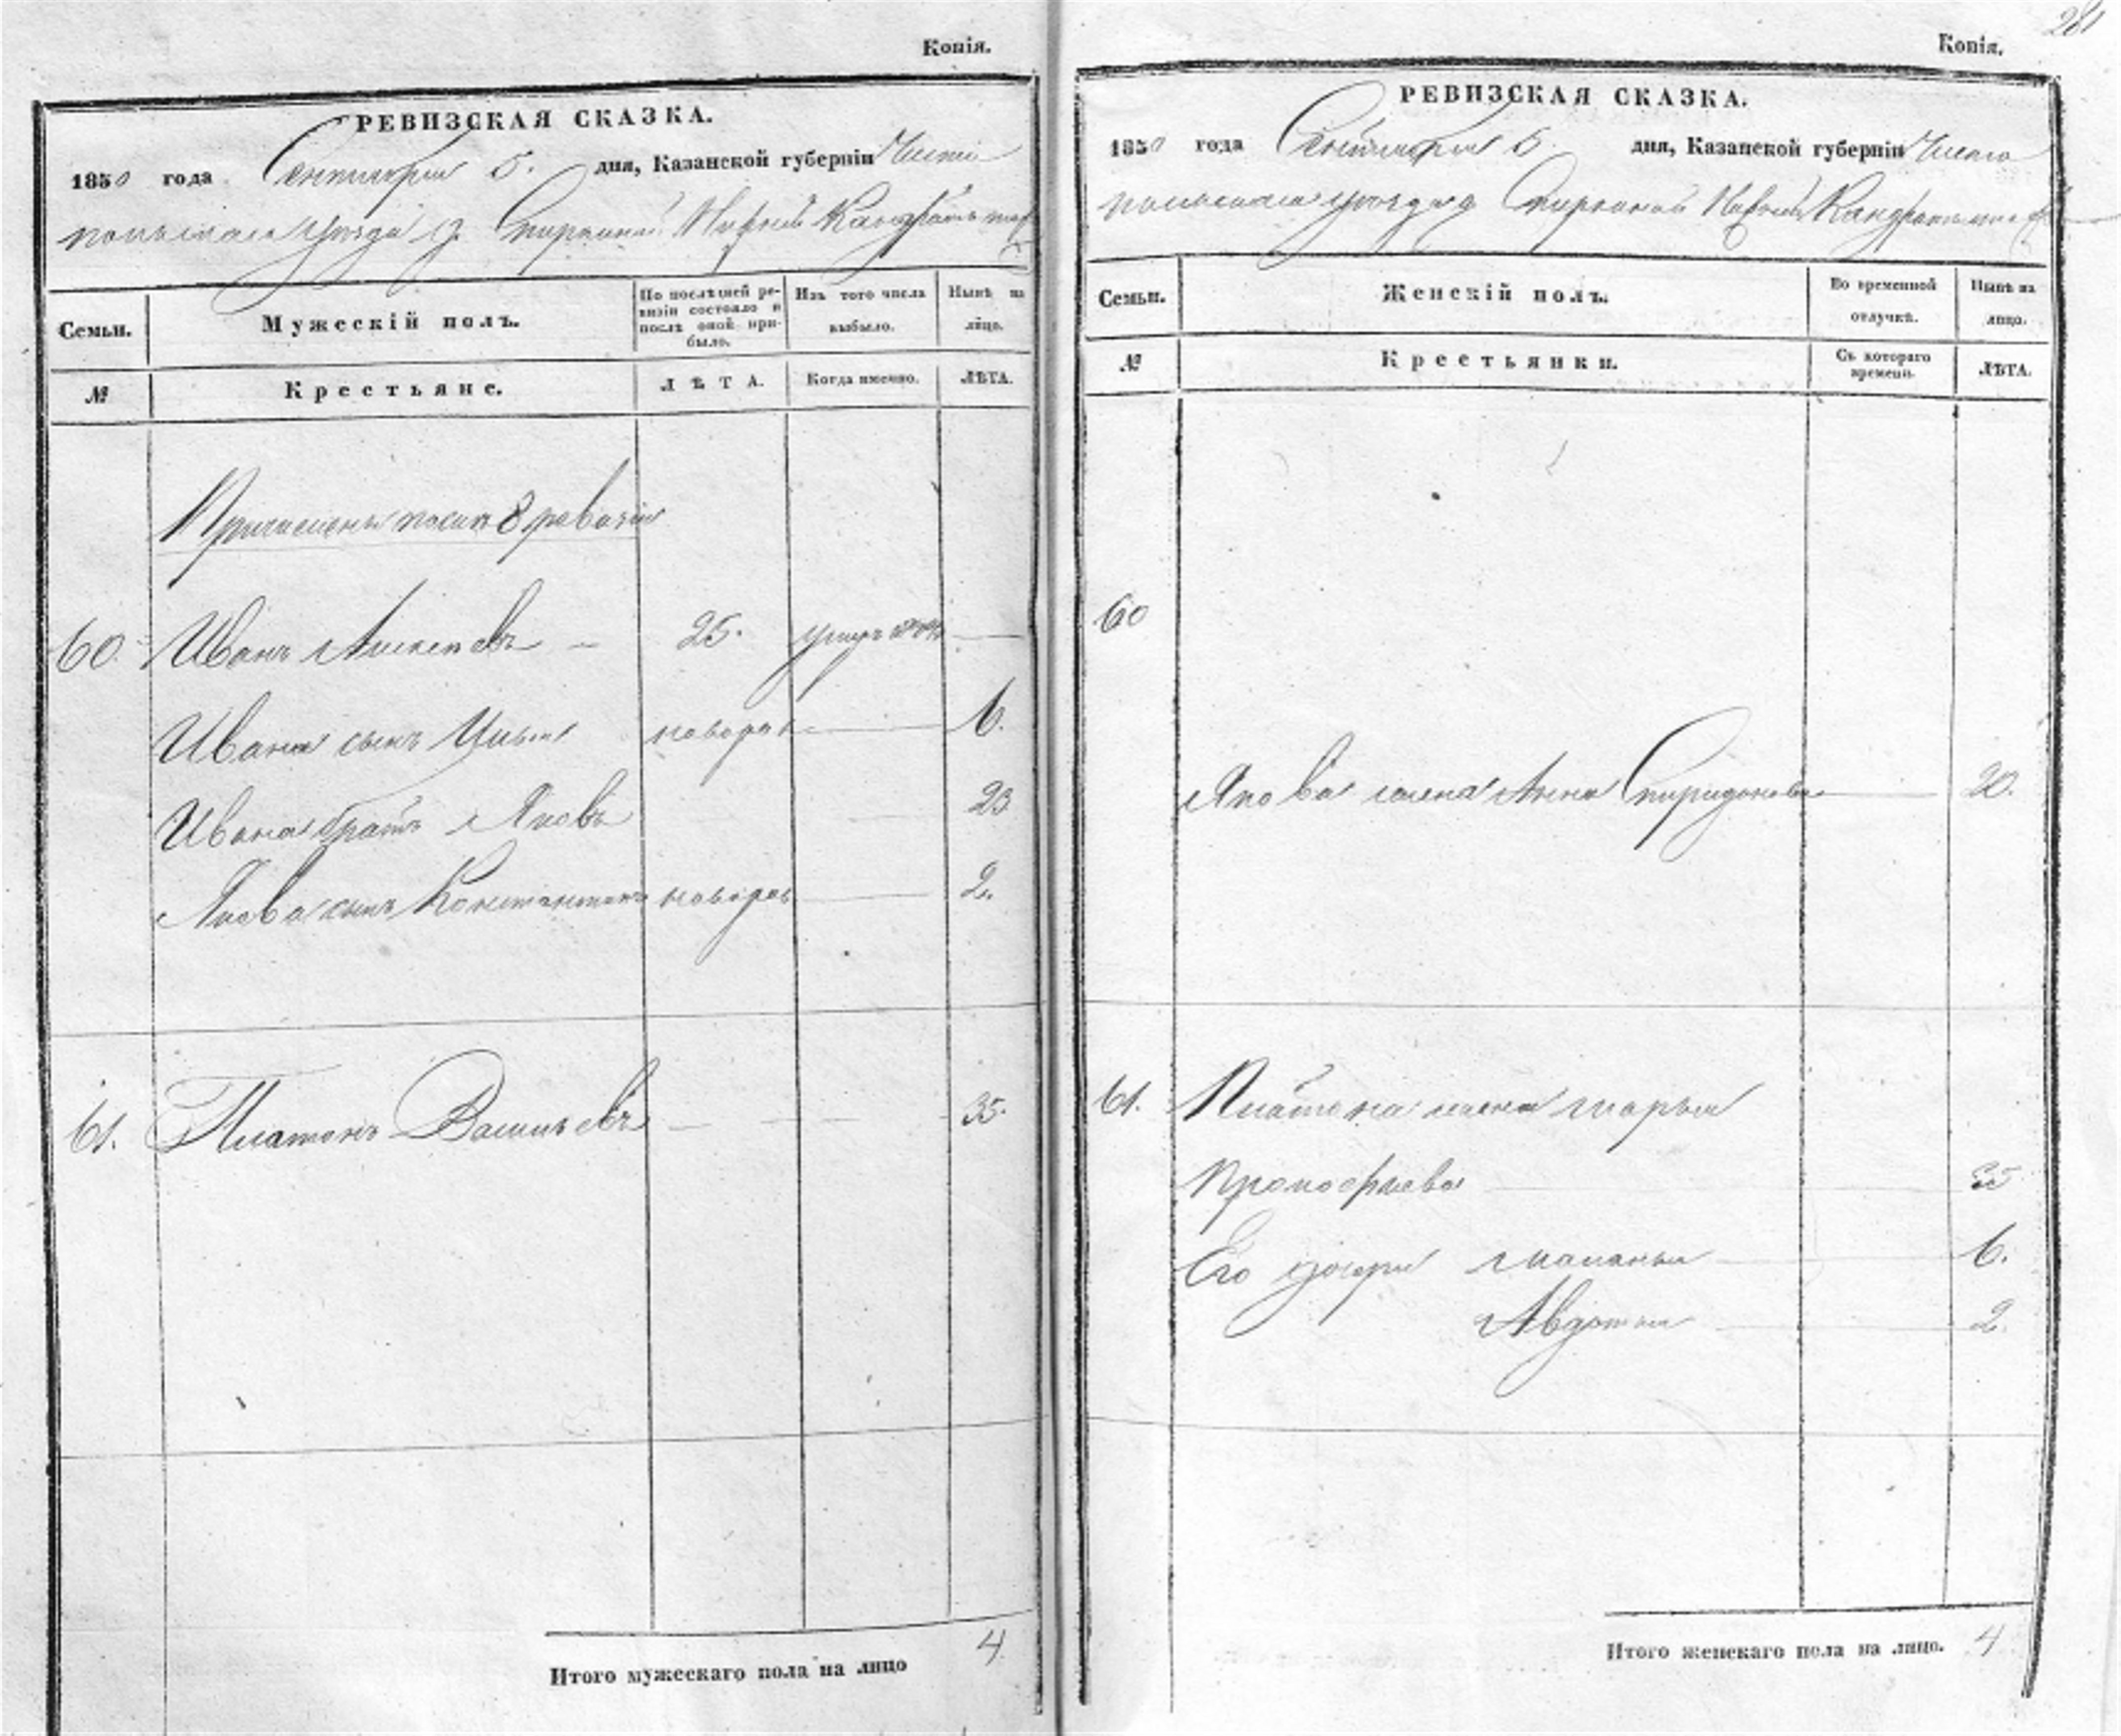 Копія.
РЕВИЗСКАЯ СКАЗКА.
1850 года Сентября 5. дня, Казанской губерніи Чисто
польскаго уѣзда д.
Семьи.
Мужескій полъ.
По послѣдней ре-
визіи состояло и
послѣ оной при-
было.
Изъ того числа
выбыло.
Нынѣ на
лицо.
№
Крестьяне.
ЛѢТА.
Когда именно.
ЛѢТА.
послѣ 8 ревизіи
60. Иванъ Алексѣевъ — 25. умеръ —
Ивана сынъ Илья новорож — 6.
Ивана братъ Яковъ — 23
Якова сынъ Константинъ новорож — 2.
61. Платонъ Васильевъ — — 35.
Итого мужескаго пола на лицо 4
281
Копія.
РЕВИЗСКАЯ СКАЗКА.
1850 года Сентября 5. дня, Казанской губерніи Чисто
польскаго уѣзда д.
Семьи.
Женскій полъ.
Во временной
отлучкѣ.
Нынѣ на
лицо.
№
Крестьянки.
Съ котораго
времени.
ЛѢТА.
60
Якова жена Анна Спиридонова — 20.
61. Платона жена Марья
Прокофьева — 35
Его дочери Маланья — 6.
Авдотья — 2.
Итого женскаго пола на лицо. 4